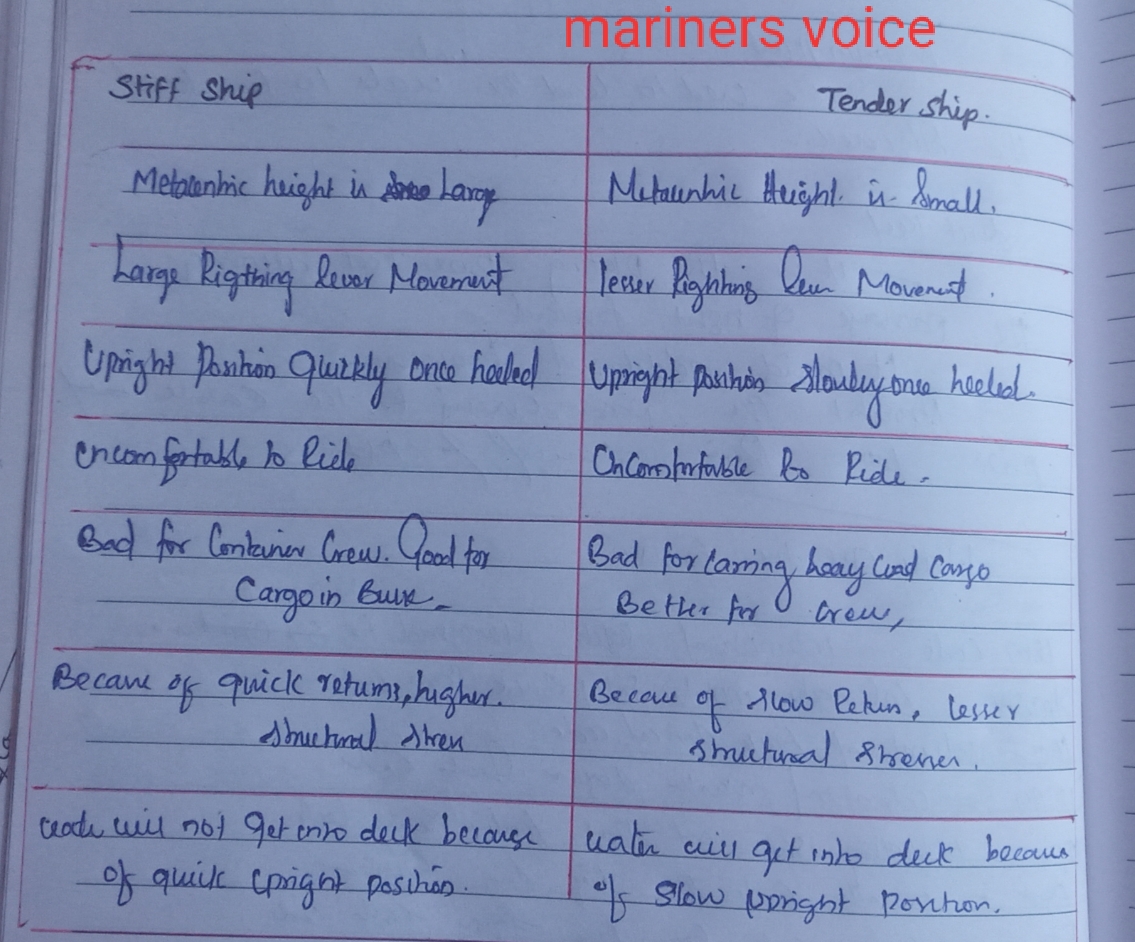 mariners voice
Stiff Ship
Tender ship.
Metacentric height is Large
Metacentric Height. is Small.
Large Rigthing lever Movement
lesser Righting lever Movement.
Upright Position Quickly once heeled
Upright position Slowly once heeled.
Uncomfortable to Ride
Uncomfortable to Ride.
Bad for Container Crew. Good for
Cargo in Bulk
Bad for Carring heavy Cargo
Better for Crew,
Because of quick returns, higher.
structural stress
Because of slow Return, lesser
structural stresses.
water will not get into deck because
of quick upright position.
water will get into deck because
of slow upright position.